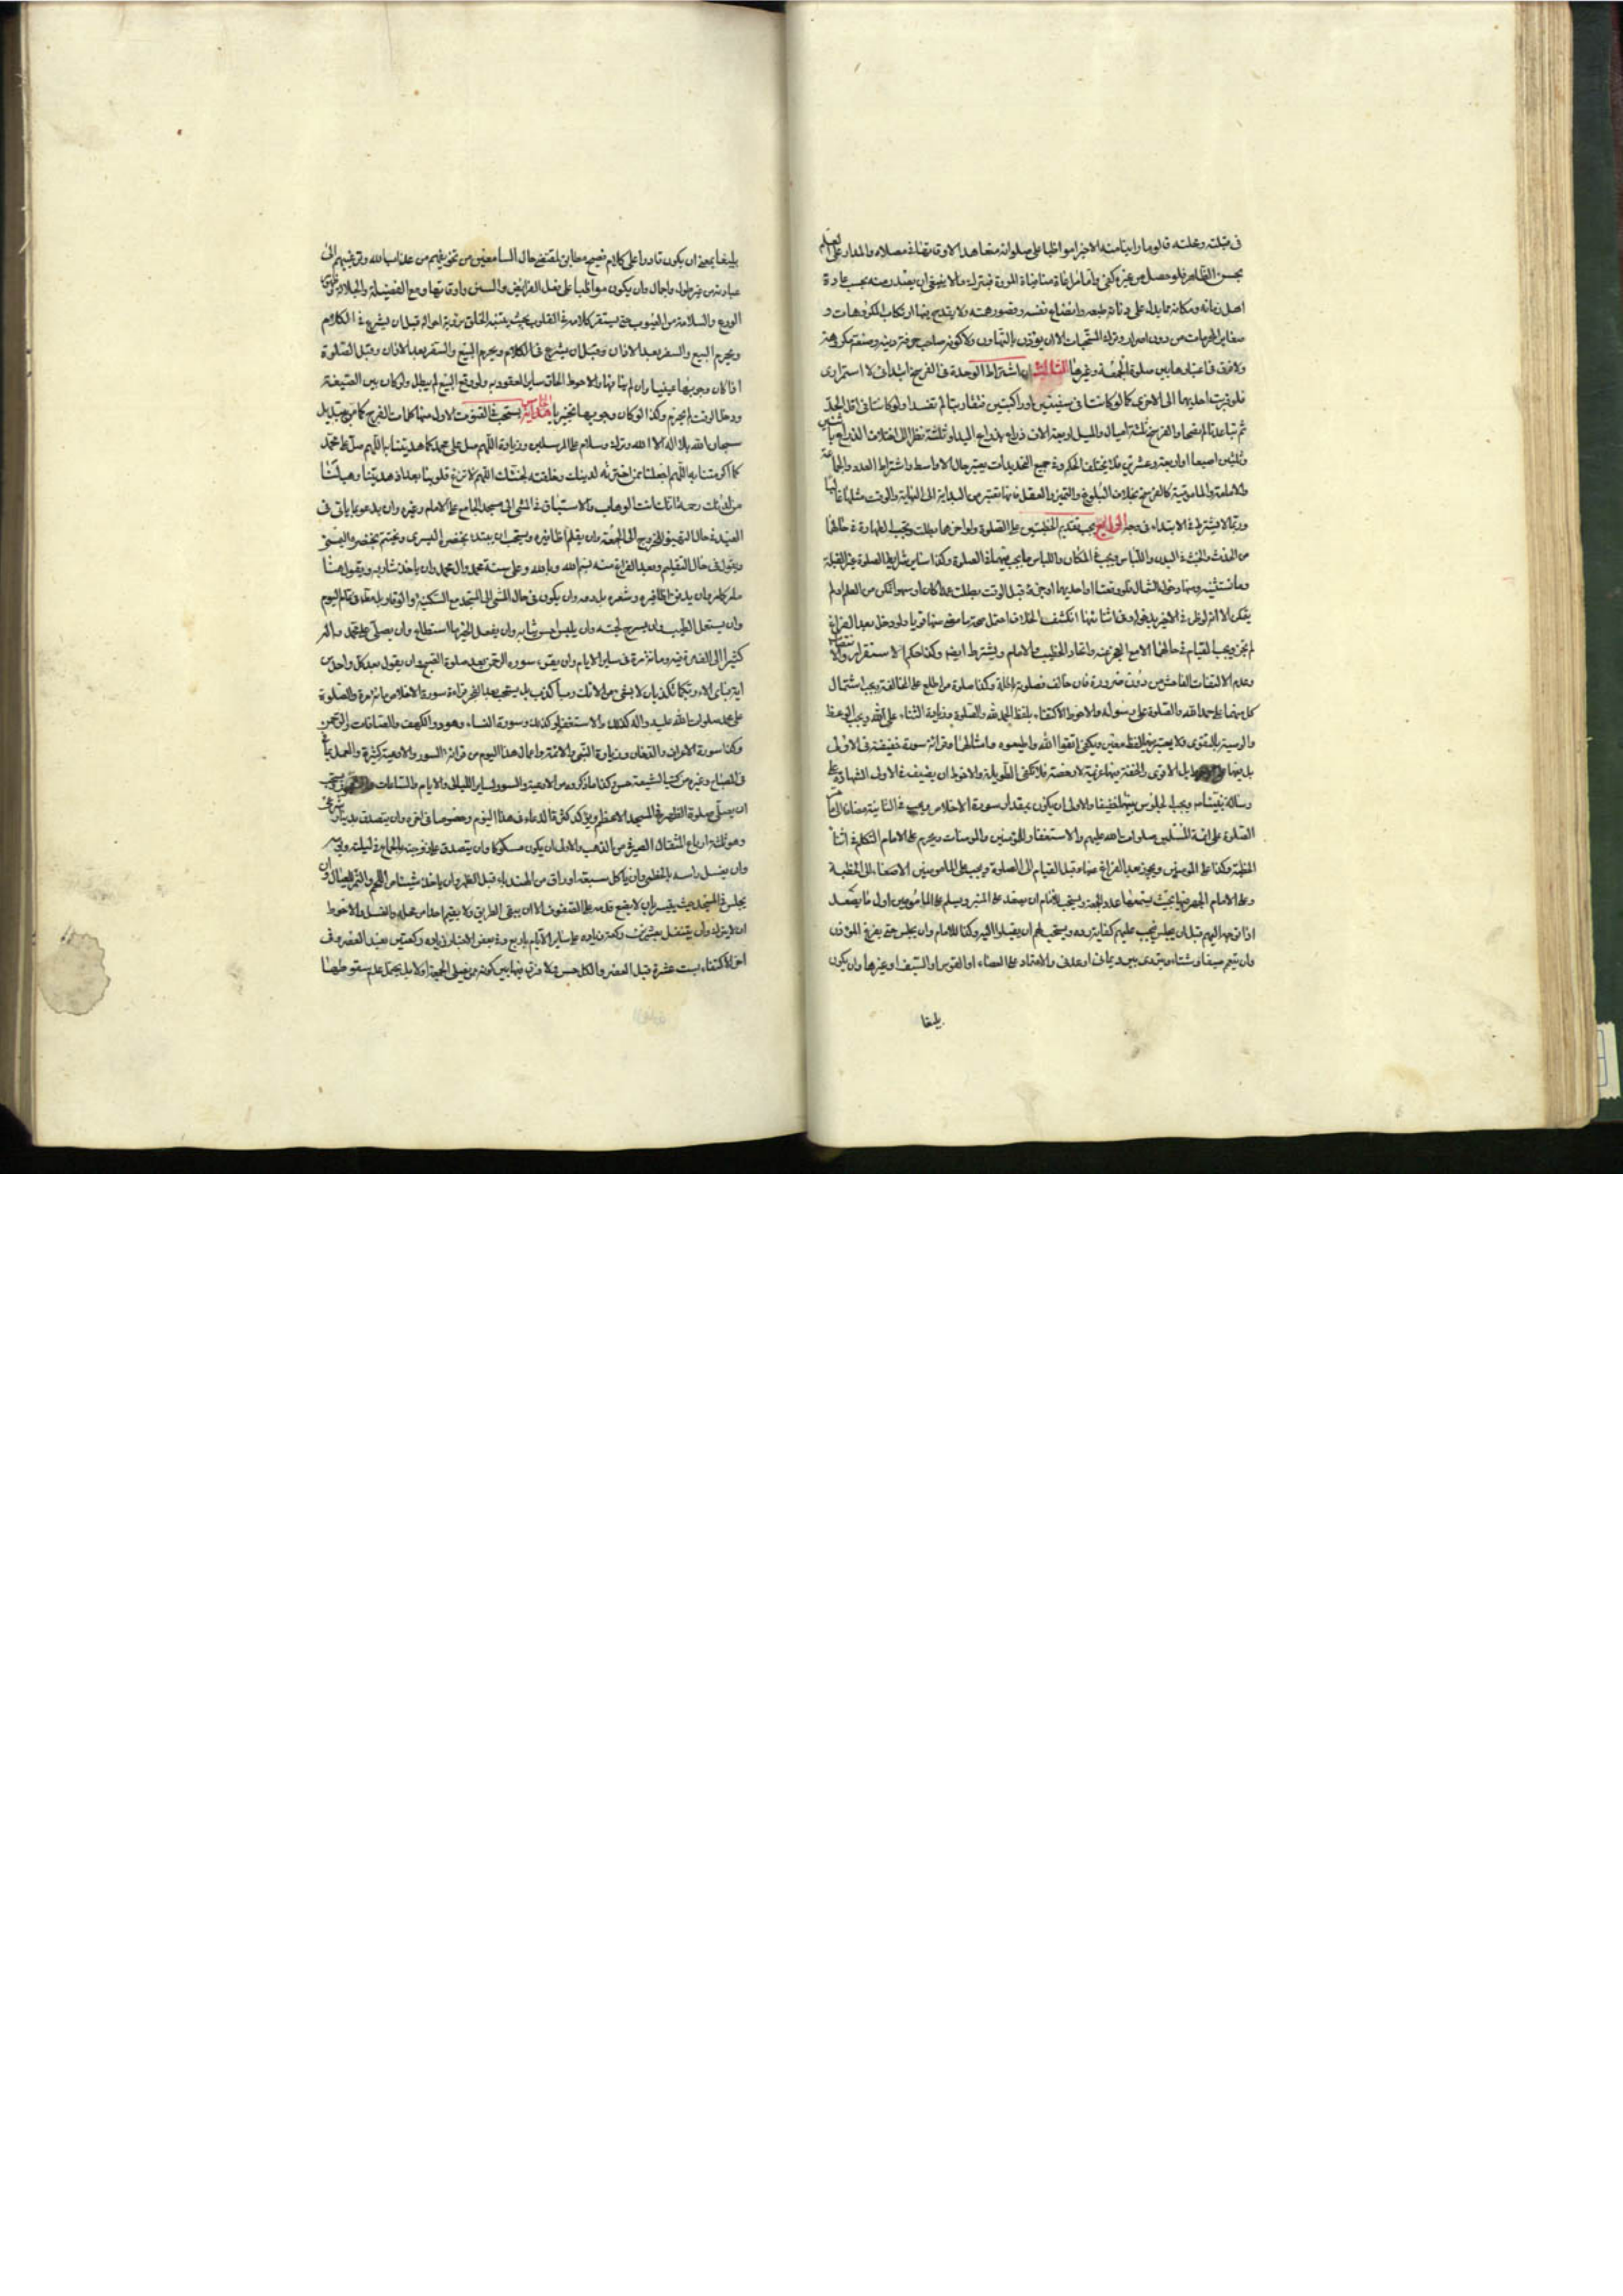 في قبيلته ومحلته قالوا ما راينا منه الا خيرا مواظبا على صلواته متعاهدا لاوقاتها في مصلاه والمدار على
بحسن الظاهر فلو حصل من غيره كفى واما مراعاة منافيات المروة فبترك ما لا ينبغي ان يصدر منه بحسب عادة
اهل زمانه ومكانه مما يدل على دنائة طبعه واتضاع نفسه وقصور همته ولا يقدح فيها ارتكاب المكروهات و
صغاير المحرمات من دون اصرار وترك المستحبات الا ان يؤذن بالتهاون ولا كونه صاحب حرفة دنية وصنعة مكروهة
ولا فرق في اعتبارها بين صلوة الجمعة وغيرها الثالث ان اشتراط الوحدة في الفرسخ ابتدائي لا استمراري
فلو قربت احديهما الى الاخرى كما لو كانتا في سفينتين او راكبتين فتقاربتا لم تفسدا ولو كانتا في اقل الحد
ثم تباعدتا لم تصحا والفرسخ ثلثة اميال والميل اربعة الاف ذراع بذراع اليد او ثلثة نظرا الى اختلاف الذراع
وثلثين اصبعا او اربعة وعشرين فلا يختلف الحكم وفي جميع التحديدات يعتبر حال الاواسط واشتراط العدد والجماعة
والامامة والمامومية كالفرسخ بخلاف البلوغ والتميز والعقل فانها تعتبر من البداية الى النهاية والوقت مثلها
وربما لا يشترط في الابتداء في وجه الرابع يجب تقديم الخطبتين على الصلوة ولو اخرهما بطلت وتجب الطهارة في حالهما
من الحدث والخبث في البدن واللباس ويجب في المكان واللباس ما يجب فيهما في الصلوة وكذا ساير شرايط الصلوة غير القبلة
وما نستثنيه ومنها دخول الشمال فلو وقعتا او احديهما او جزء قبل الوقت بطلت عمدا كان او سهوا تمكن من العلم او لم
يتمكن الا انه لو ظن في الاخير بدخوله وفي اثنائها انكشف الخلاف احتمل صحة ما وقع منها قويا ولو دخل بعد الفراغ
لم يجز ويجب القيام في حالهما الا مع العجز عنه واتحاد الخطيب والامام ويشترط ايضا وكذا حكم الاستقرار
وعدم الالتفات الفاحش من دون ضرورة فان خالف فصلوته باطلة وكذا صلوة من اطلع على المخالفة ويجب اشتمال
كل منهما على حمد الله والصلوة على رسوله والاحوط الاكتفاء بلفظ الحمد لله والصلوة وزيادة الثناء على الله ويجب الوعظ
والوصية بالتقوى ولا يعتبر فيهما لفظ معين ويكفي اتقوا الله واطيعوه وامثالهما وقرائة سورة خفيفة في الاولى
بل فيهما على الاقوى والخفة فيها عزيمة لا رخصة فلا تكفي الطويلة والاحوط ان يضيف في الاولى الشهادة
رسالة نبينا ويجب الجلوس بينهما خفيفا والاولى ان يكون بمقدار سورة الاخلاص ويجب في الثانية مضافا الى ما مر
الصلوة على ائمة المسلمين صلوات الله عليهم والاستغفار للمؤمنين والمؤمنات ويحرم على الامام التكلم في اثناء
الخطبة وكذا على المؤمنين ويجوز بعد الفراغ منها وقبل القيام الى الصلوة ويجب على المامومين الاصغاء الى الخطبة
وعلى الامام الجهر بها بحيث يسمعها عدد الجمعة ويستحب للامام ان يصعد على المنبر ويسلم على المامومين اول ما يصعد
اذا توجه اليهم قبل ان يجلس فيجب عليهم كفاية رده ويستحب لهم ان يقبلوا اليه وكذا للامام وان يجلس حتى يفرغ المؤذن
وان يتعمم صيفا وشتاء ويتردى ببرد يماني او عدني والاعتماد على العصاء او القوس او السيف او غيرها وان يكون
بليغا
بليغا بمعنى ان يكون قادرا على كلام فصيح مطابق لمقتضى حال السامعين من تخويفهم من عذاب الله وترغيبهم الى
عبادته من غير طول واجمال وان يكون مواظبا على فعل الفرائض والسنن واوقاتها ومع الفضيلة والجلالة
الورع والسلامة من العيوب حتى يستقر كلامه في القلوب بحيث يعتبر الخلق برؤية احواله قبل ان يشرع في الكلام
ويحرم البيع والسفر بعد الاذان وقبل ان يشرع في الكلام ويحرم البيع والسفر بعد الاذان وقبل الصلوة
اذا كان وجوبها عينيا وان لم ينافها والاحوط الحاق ساير العقود به ولو وقع البيع لم يبطل ولو كان بين الصيغة
ودخل الوقت لم يحرم وكذا لو كان وجوبها تخييريا الخامس يستحب في القنوت الاول منها كلمات الفرج كما مر بتبديل
سبحان الله بلا اله الا الله وترك وسلام على المرسلين وزيادة اللهم صل على محمد كما هديتنا به اللهم صل على محمد
كما اكرمتنا به اللهم اجعلنا ممن اخترته لدينك وخلقته لجنتك اللهم لا تزغ قلوبنا بعد اذ هديتنا وهب لنا
من لدنك رحمة انك انت الوهاب والاستباق في المشي الى مسجد الجامع على الامام وغيره وان يدعو بما ياتي في
العيد في حال التهيؤ للخروج الى الجمعة وان يقلم اظافيره ويستحب ان يبتدئ بخنصر اليسرى ويختم بخنصر اليمنى
ويقول في حال التقليم وبعد الفراغ منه بسم الله وبالله وعلى سنة محمد وال محمد وان ياخذ شاربه ويقول هذا
وان يدفن اظافيره وشعره بل دمه وان يكون في حال المشي الى المسجد مع السكينة والوقار بل
وان يستعمل الطيب وان يسرح لحيته وان يلبس احسن ثيابه وان يفعل الخير ما استطاع وان يصلي على محمد واله
كثيرا الى الف مرة فيه ومائة مرة في ساير الايام وان يقرء سورة الرحمن بعد صلوة الصبح وان يقول بعد كل واحد من
اية فباي الاء ربكما تكذبان لا بشيء من الائك رب اكذب بل يستحب بعد الفجر قراءة سورة الاخلاص مائة مرة والصلوة
على محمد صلوات الله عليه واله كذلك والاستغفار كذلك وسورة النساء وهود والكهف والصافات والرحمن
وكذا سورة الاعراف والدخان وزيارة النبي والائمة واعمال هذا اليوم من قرائة السور والادعية كثيرة والعمل بما
في المصباح وغيره من كتب الشيعة حسن وكذا ما ذكروه من الادعية والسور لساير الليالي والايام والساعات
ان يصلي صلوة الظهر في المسجد الاعظم ويؤكد كثرة الدعاء في هذا اليوم وخصوصا في اخره وان يتصدق بدينار
وهو ثلثة ارباع المثقال الصيرفي من الذهب والاولى ان يكون مسكوكا وان يتصدق والجماع في ليلته
وان يغسل راسه بالخطمي وان ياكل سبعة اوراق من الهندباء قبل الظهر وان ياخذ شيئا من اللحم والتمر للعيال وان
يجلس في المسجد حيث يتيسر بان لا يضع قدمه على الصفوف الا ان يبقى الطريق ولا يقيم احدا من محله والغسل والاحوط
ان لا يتركه وان يتنفل بعشرين ركعة زيادة على ساير الايام باربع وفي بعض الاخبار زيادة ركعتين بعد العصر وفي
اخر الاكتفاء بست عشرة قبل العصر والكل حسن ولا فرق فيها بين كونه ممن يصلي الجمعة او لا بل يحتمل عدم سقوطها